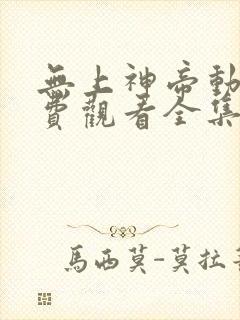 無上神帝動
費觀看全集
馬西莫-莫拉